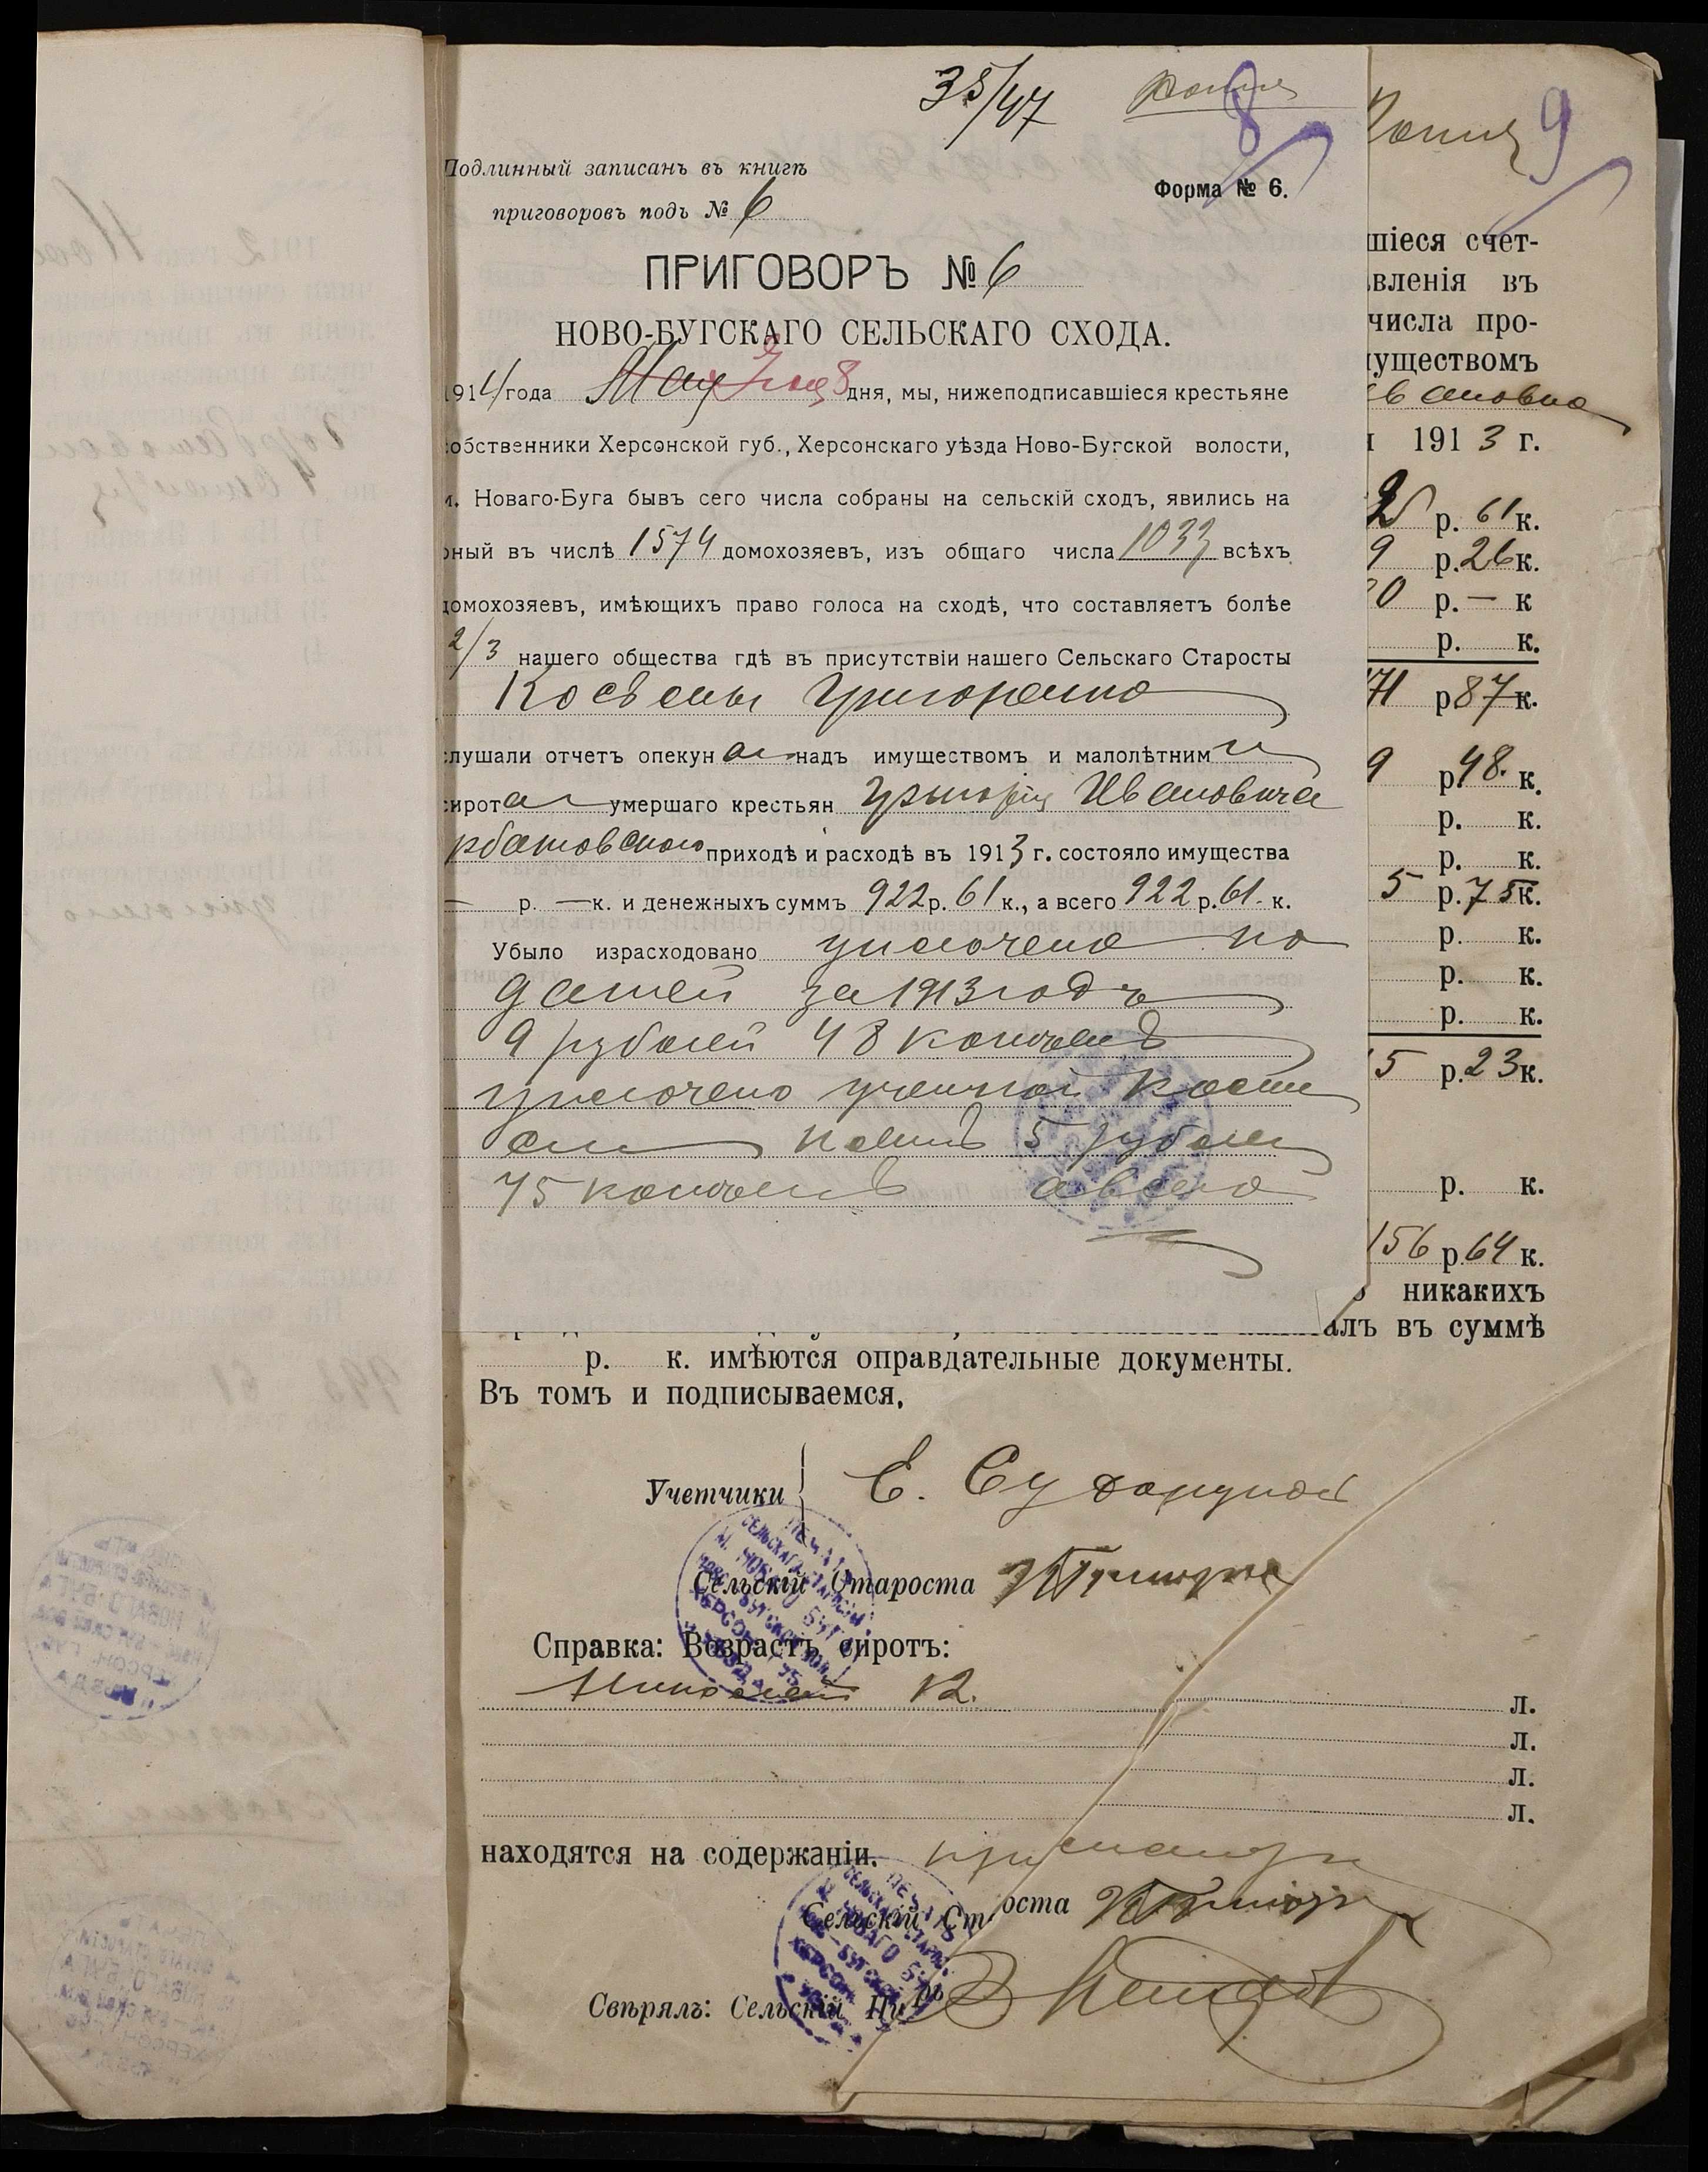 35/47 Копия 8
Подлинный записанъ въ книгѣ
приговоровъ подъ № 6
Форма № 6.
ПРИГОВОРЪ № 6
НОВО-БУГСКАГО СЕЛЬСКАГО СХОДА.
1914 года Мая 8 дня, мы, нижеподписавшіеся крестьяне
собственники Херсонской губ., Херсонскаго уѣзда Ново-Бугской волости,
м. Новаго-Буга бывъ сего числа собраны на сельскій сходъ, явились на
оный въ числѣ 1574 домохозяевъ, изъ общаго числа 1033 всѣхъ
домохозяевъ, имѣющихъ право голоса на сходѣ, что составляетъ болѣе
2/3 нашего общества гдѣ въ присутствіи нашего Сельскаго Старосты
Косьмы Григоренко
слушали отчетъ опекуновъ надъ имуществомъ и малолѣтними
сиротами умершаго крестьян Григорія Ивановича
рбатовского приходѣ и расходѣ въ 1913 г. состояло имущества
— р. — к. и денежныхъ суммъ 922 р. 61 к., а всего 922 р. 61 к.
Убыло израсходовано уплочено по
датей за 1913 годъ
9 рублей 48 копѣекъ
уплочено
5 рублей
75 копѣекъ а всего
Копия 9
шіеся счет-
вленія въ
числа про-
муществомъ
ивановна
1913 г.
2 р. 61 к.
9 р. 26 к.
0 р. — к
р. к.
71 р 87 к.
9 р 48. к.
р. к.
р. к.
5 р. 75 к.
р. к.
р. к.
р. к.
15 р. 23 к.
р. к.
156 р. 64 к.
никакихъ
алъ въ суммѣ
р. к. имѣются оправдательные документы.
Въ томъ и подписываемся,
Учетчики Е.
Сельскій Староста
Справка: Возрастъ сиротъ:
Николай 12. л.
л.
л.
л.
находятся на содержаніи. при матери
Сельскій Ст оста
Свѣрялъ: Сельскій Пи рь